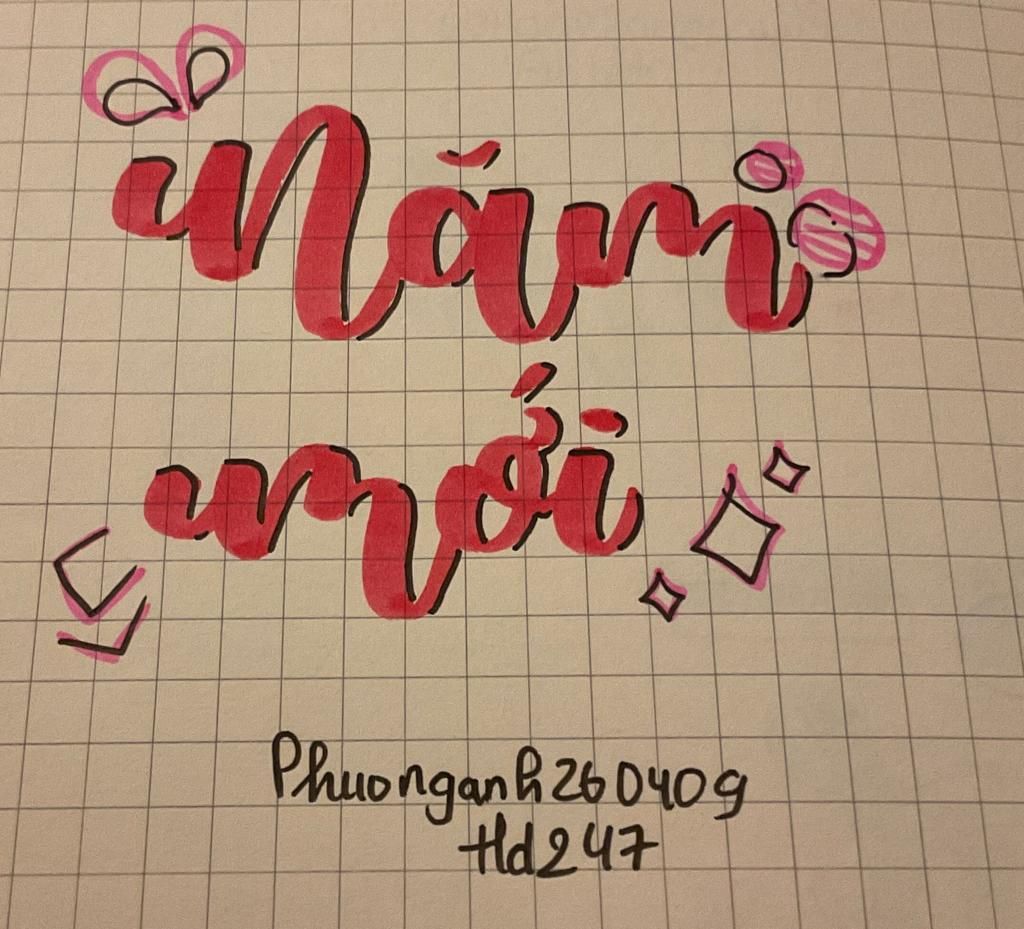 Năm
mới
Phuonganh260409
Hd247